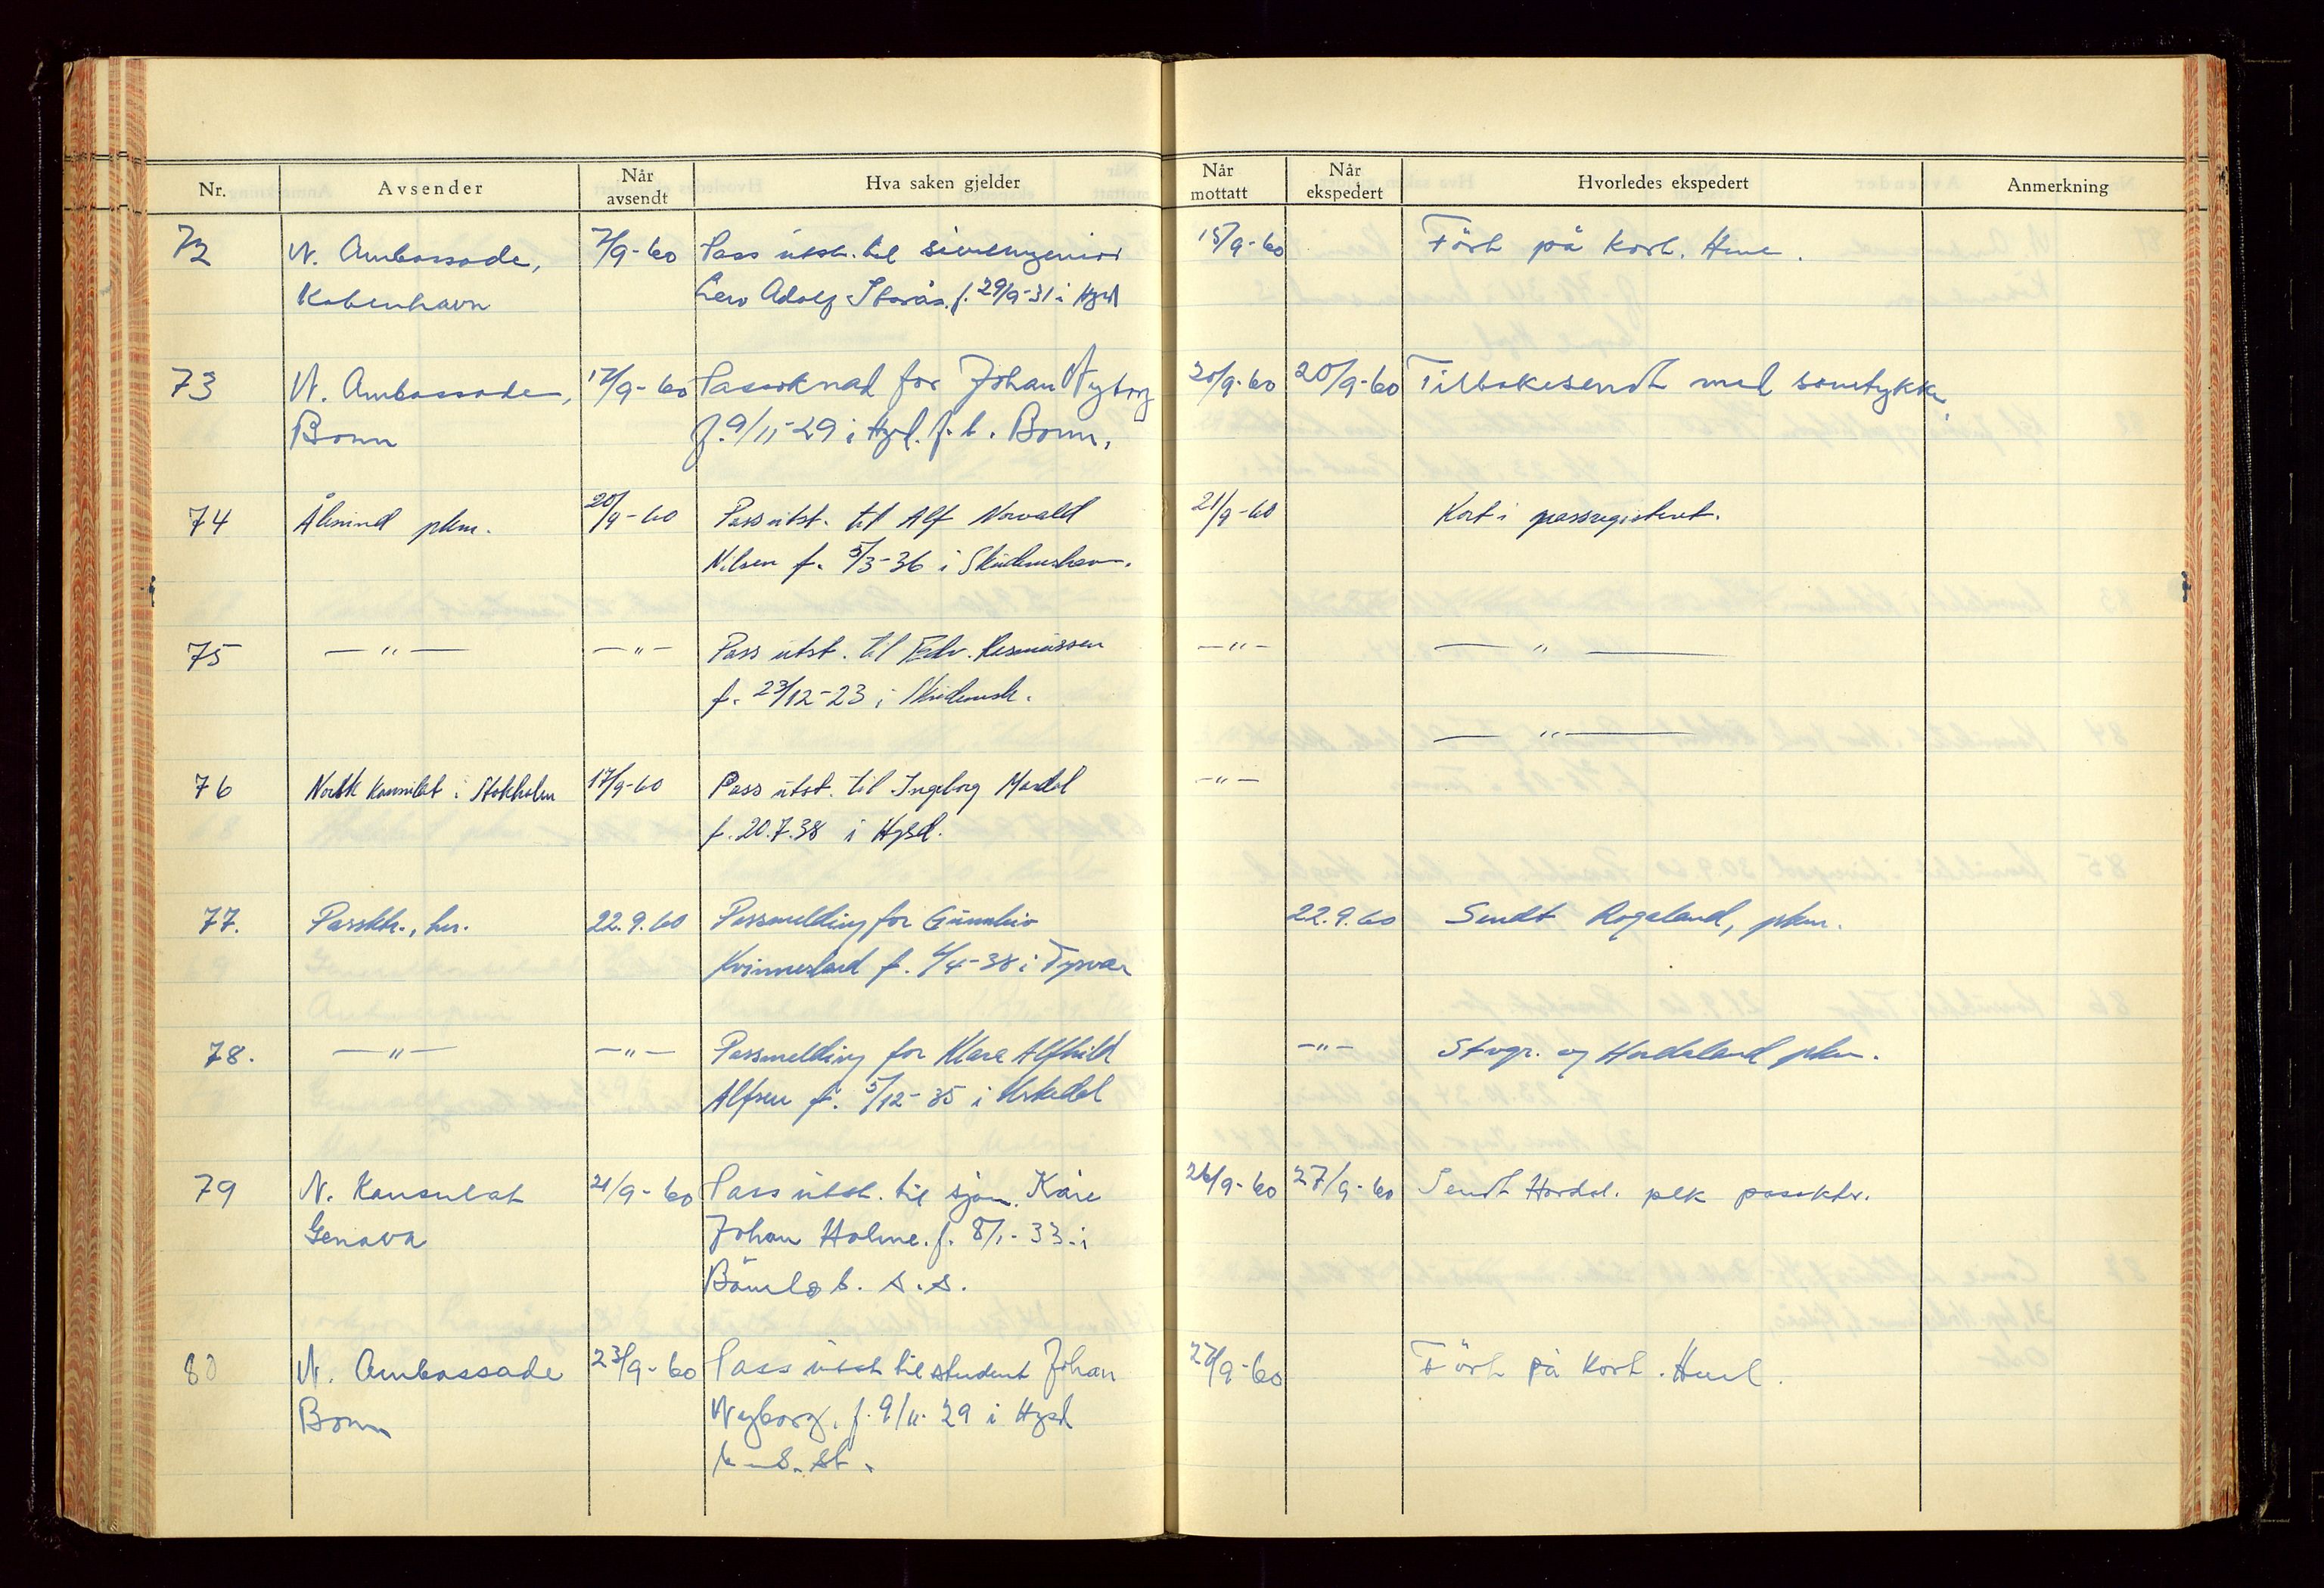 Nr. Avsender Når avsendt Hva saken gjelder Når mottatt Når ekspedert Hvorledes ekspedert Anmerkning
72 N. Ambassade, 7/9-60 Pass utst. til sivilingeniør 15/9-60 Fört på kort.
København Adolf f. 29/9-31 i Hgsd
73 N. Ambassade, 17/9-60 Passøknad for Johan Nyborg 20/9-60 20/9-60 Tilbakesendt med samtykke.
Bonn f. 9/11-29 i Hgsd. f. t. Bonn.
74 Ålesund pkm. 20/9-60 Pass utst. til Alf Norvald 21/9-60 Kort i passregisteret.
Nilsen f. 5/3-36 i Skudeneshavn.
75 — " — — " — Pass utst. til Edv. Rasmussen — " — — " —
f. 23/12-23 i Skudenesh.
— " —
76 Norsk Konsulat i Stokholm 17/9-60 Pass utst. til Ingeborg — " —
f. 20.7.38 i Hgsd.
77. Passktr., her. 22.9.60 Passmelding for 22.9.60 Sendt Rogaland, pkm.
Kvinnesland f. 4-38 i Tysvær
78. — " — — " — Passmelding for Klara Alfhild — " — Stvgr. og Hordaland pkm.
Alfsen f. 5/12-35 i
79 N. Konsulat 21/9-60 Pass utst. til sjøm. Kåre 26/9-60 27/9-60 Sendt Hordal. plk passktr.
Genova Johan Holme. f. 8/1-33 i
Bömlo b. s. s.
80 N. Ambassade 23/9-60 Pass utst til student Johan 27/9-60 Fört på kort.
Bonn Nyborg. f. 9/11-29 i Hgsd